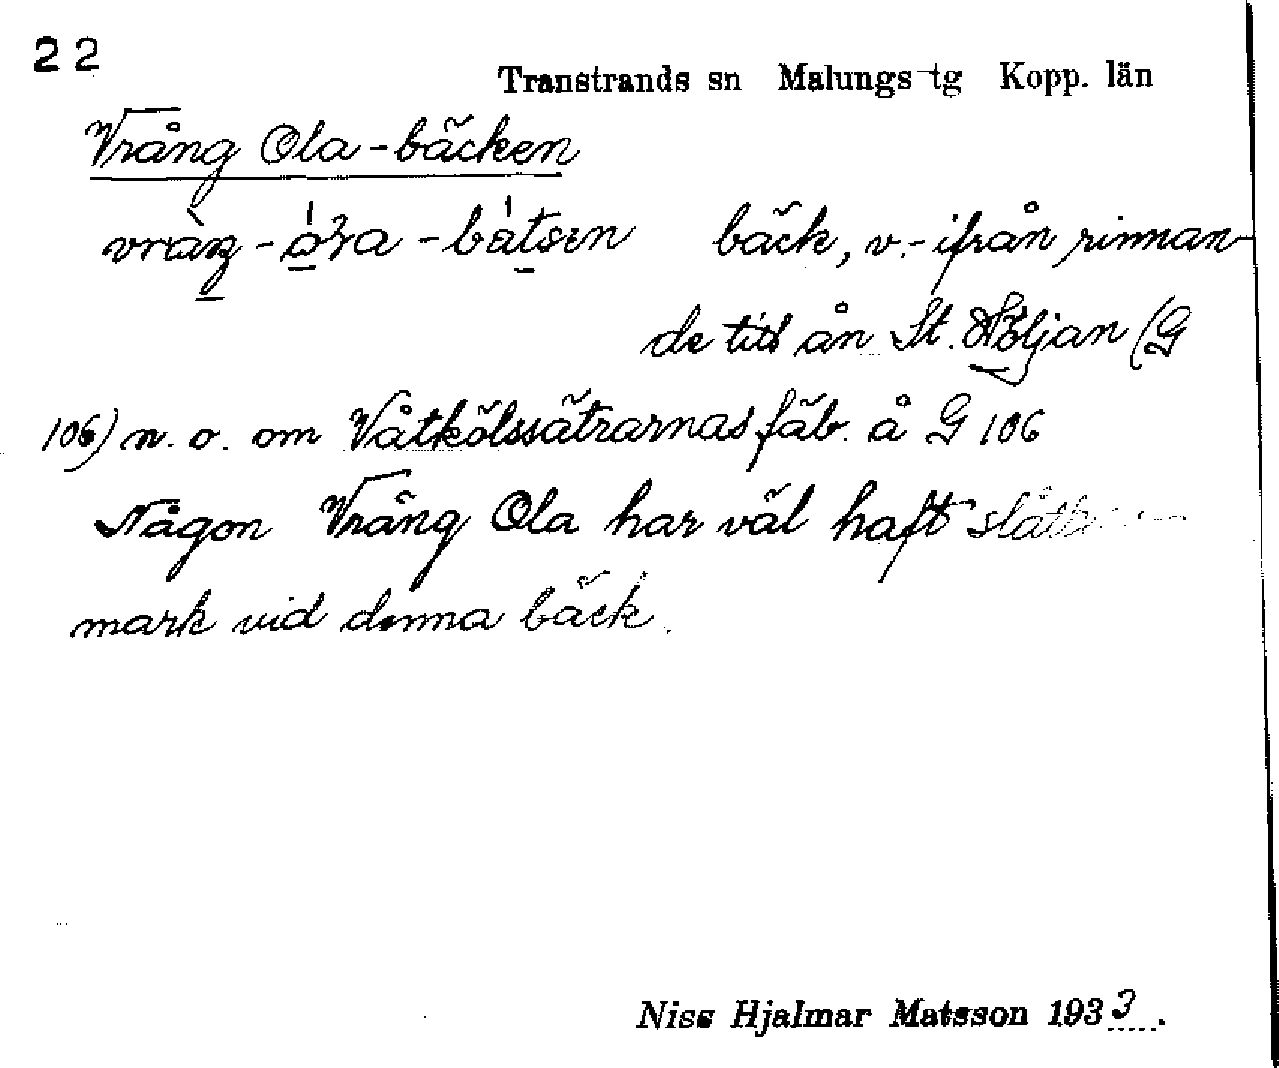 22
Transtrands sn Malungs tg Kopp. län
Vrång Ola-bäcken
bäck, v.-ifrån rinnan-
de till ån St. Höljan (G
106) n. o. om Våtkölssätrarnas fäb. å G 106
Någon Vrång Ola har väl haft slåtter-
mark vid denna bäck.
Niss Hjalmar Matsson 1933.